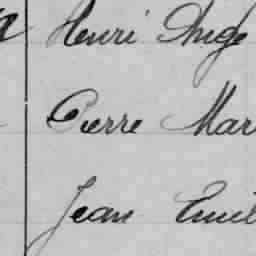 Henri Ange
Pierre Mar
Jean Emil